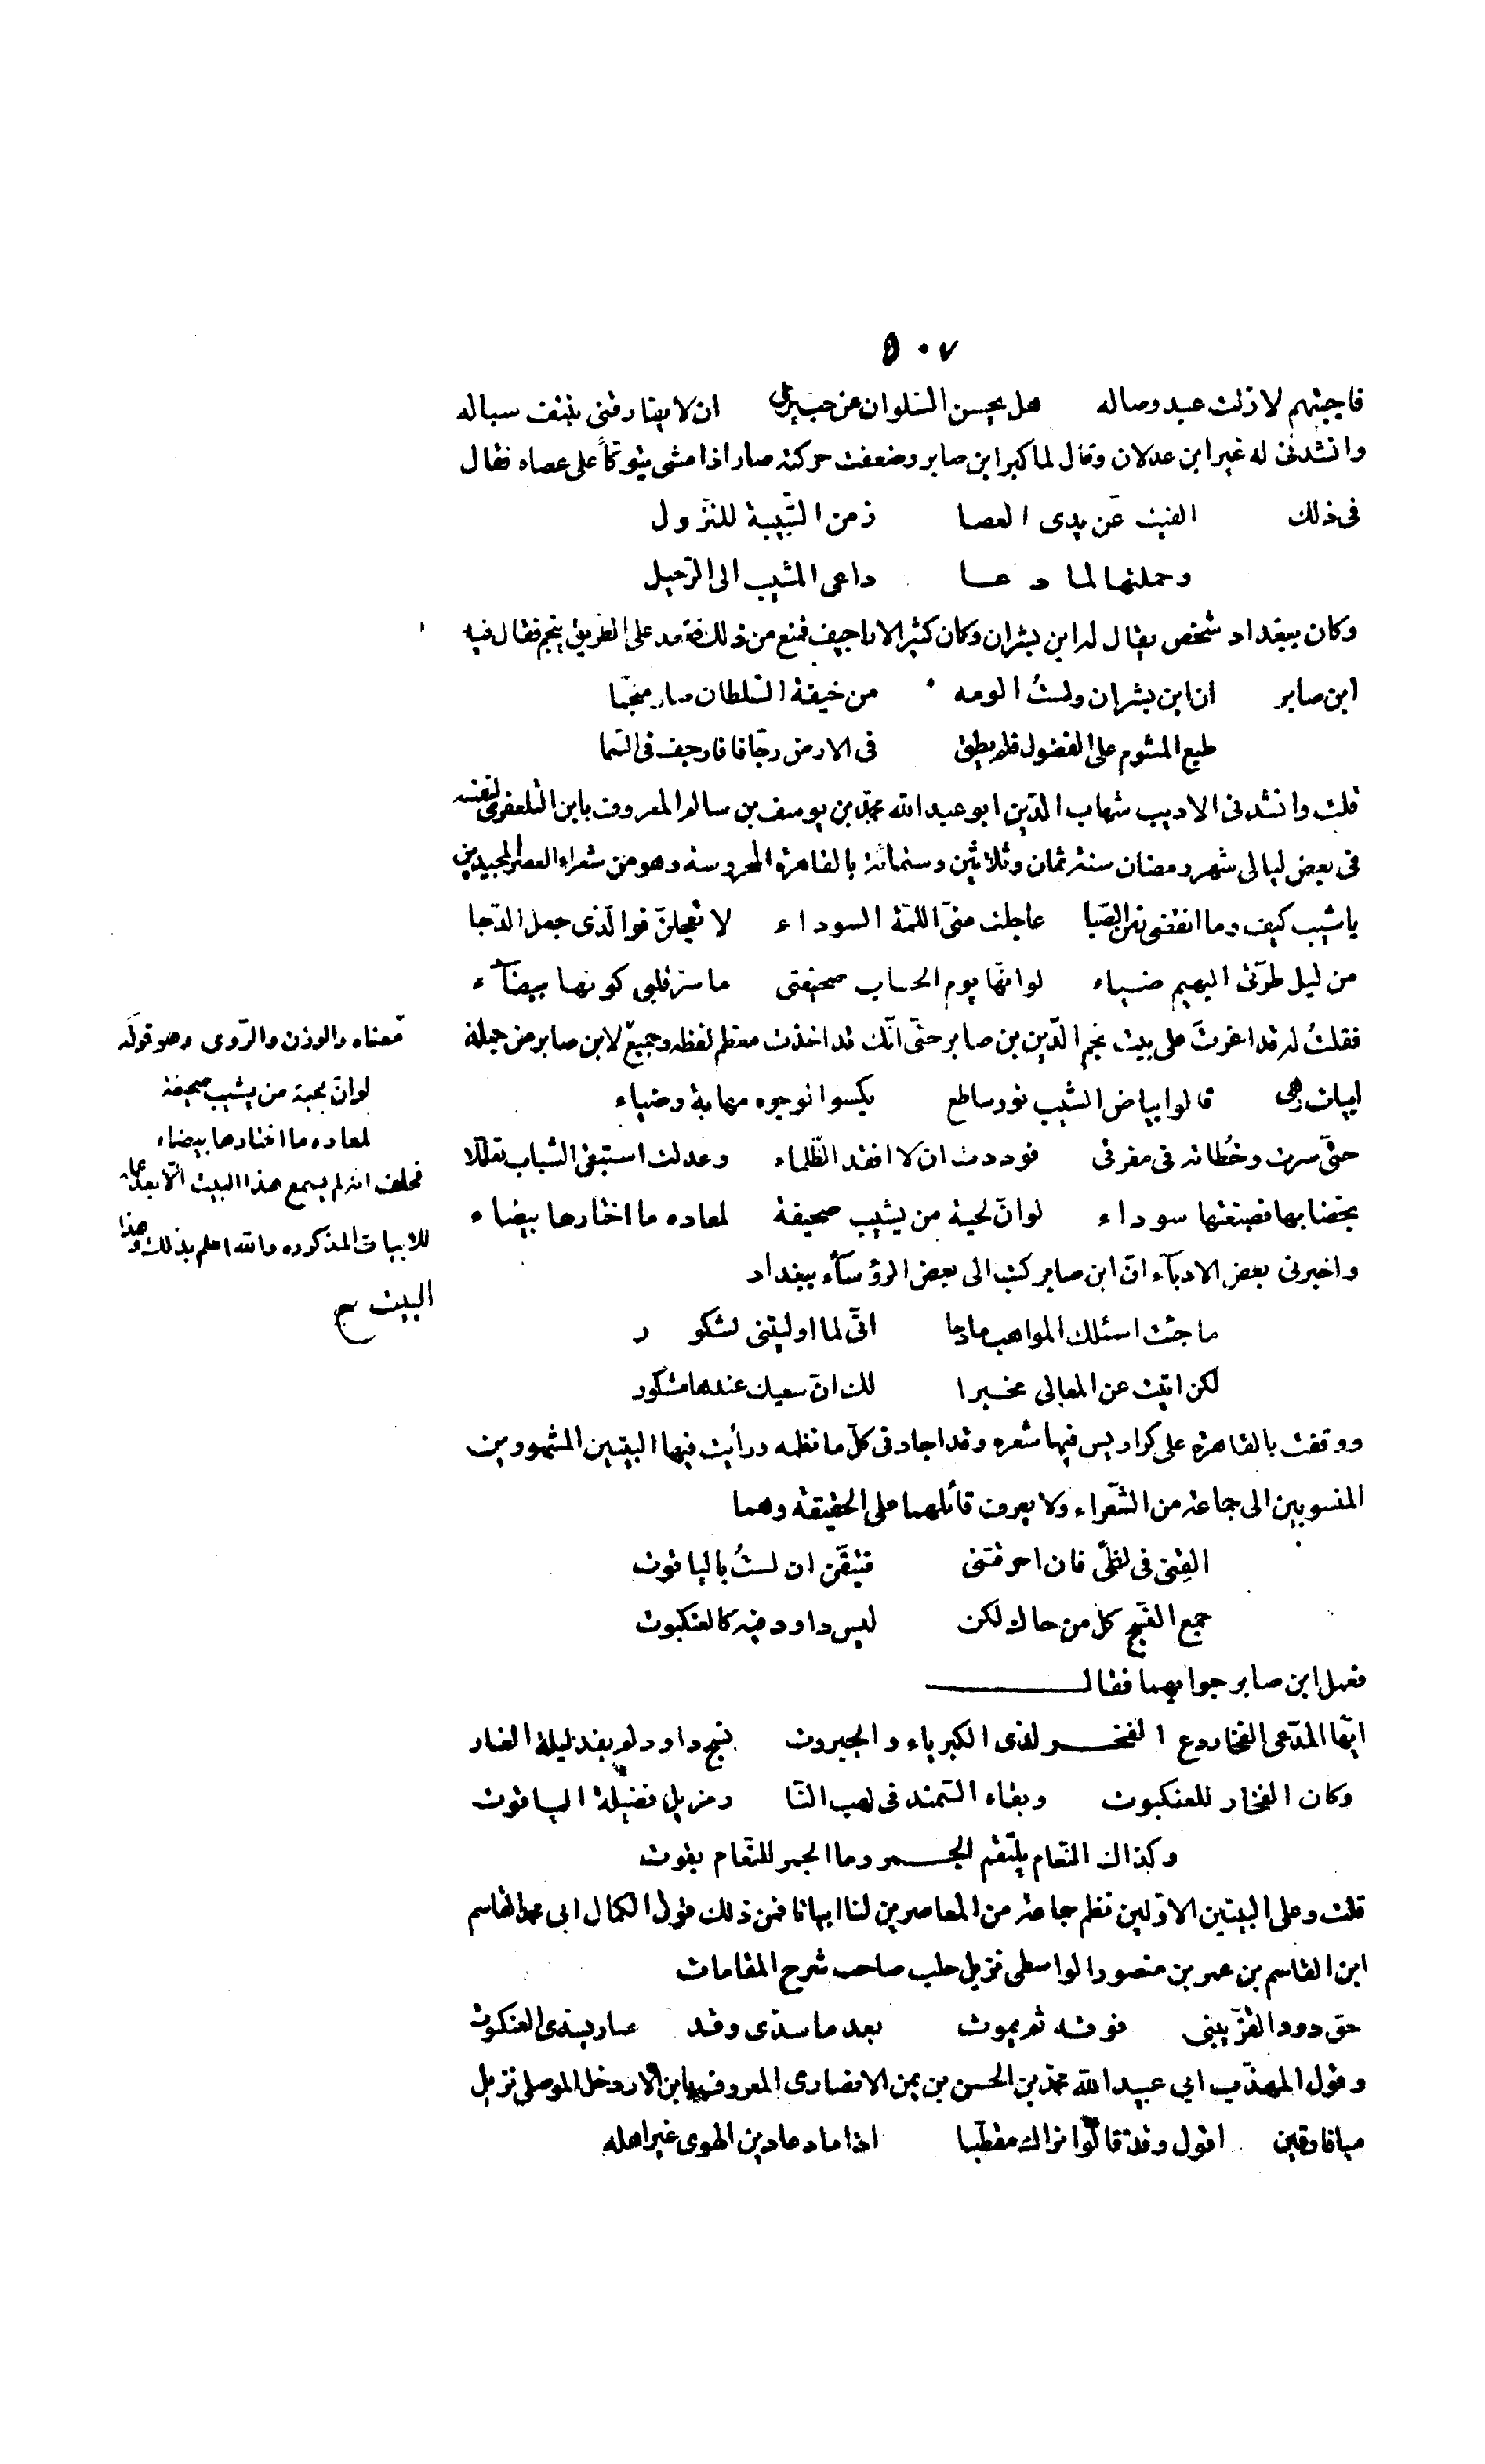 ٥٠٧
فاجبتهم لا زلت عبد وصاله هل يحسن السلوان عن حب يرى ان لا يفارقنى بنتف سباله
وانشدنى له غير ابن عدلان وقال لما كبر ابن صابر وضعفت حركته صار اذا مشى يتوكأ على عصاه فقال
فى ذلك القيت عن يدى العصا زمن الشبيبة للنزول
وحملتها لما دعا داعى المشيب الى الرحيل
وكان ببغداد شخص يقال له ابن بشران وكان كثير الاراجيف فمنع من ذلك فقعد على الطريق ينجم فقال فيه
ابن صابر ان ابن بشران ولستُ الومه من خيفة السلطان صار منجما
طبع المشوم على الفضول فلم يطق فى الارض رجّافا فارجف فى السّما
قلت وانشدنى الاديب شهاب الدّين ابو عبد الله محمّد بن يوسف بن سالم المعروف بابن التلعفرى لنفسه
فى بعض ليالى شهر رمضان سنة ثمان وثلاثين وستمائة بالقاهرة المحروسة وهو من شعراء العصر المجيدين
يا شيب كيف وما انقضى زمن الصّبا عاجلت منّى اللمّة السوداء لا تعجلنّ فوالّذى جعل الدّجا
من ليل طرّتى البهيم ضياء لو انّها يوم الحساب صحيفتى ما سرّ قلبى كونها بيضآء
فقلتُ له قد اغرتَ على بيت نجم الدّين بن صابر حتّى انّك قد اخذت معظم لفظه وجميع لابن صابر من جملة
ابيات وهى قالوا بياض الشيب نور ساطع يكسو الوجوه مهابة وضياء
حتّى سرت وخُطاته فى مفرقى فوددت ان لا افقد الظّلماء وعدلت استبقى الشباب تعلّلا
بخضابها فصبغتها سوداء لو انّ لحية من يشيب صحيفة لمعاده ما اختارها بيضاء
واخبرنى بعض الادبآء انّ ابن صابر كتب الى بعض الرؤسآء ببغداد
ما جئت اسئلك المواهب مادحا انّى لما اوليتنى لشكور
لكن اتيت عن المعالى مخبرا لك انّ سعيك عندها مشكور
ووقفت بالقاهرة على كراريس فيها شعره وقد اجاد فى كلّ ما نظمه ورأيت فيها البيتين المشهورين
المنسوبين الى جماعة من الشّعراء ولا يعرف قائلهما على الحقيقة وهما
القنى فى لظىً فان احرقتنى فتيقّن ان لستُ بالياقوت
جمع النّسج كل من حاك لكن ليس داود فيه كالعنكبوت
فعمل ابن صابر جوابهما فقال
ايّها المدّعى الفخار دع الفخر لذى الكبرياء والجبروت نسج داود لم يفد ليلة الغار
وكان الفخار للعنكبوت وبقاء السّمند فى لهب النّا ر مزيل فضيلة الياقوت
وكذاك النعام يلتقم الجمر وما الجمر للنّعام بقوت
قلت وعلى البيتين الاوّلين نظم جماعة من المعاصرين لنا ابياتا فمن ذلك قول الكمال ابى محمد القاسم
ابن القاسم بن عمر بن منصور الواسطى نزيل حلب صاحب شرح المقامات
حق دود القزّ يبنى فوقه ثم يموت بعد ما سدّى وقد صار يسدى العنكبوت
وقول المهذّب ابى عبد الله محمّد بن الحسن بن يمن الانصارى المعروف بابن الاردخل الموصلى نزيل
ميافارقين اقول وقد قالوا نراك مقطّبا اذا ما دعا دين الهوى غير اهله
معناه والوزن والرّوى وهو قوله
لو انّ لحية من يشيب صحيفة
لمعاده ما اختارها بيضاء
فحلف انه لم يسمع هذا البيت الّا بعد عمله
للابيات المذكوره والله اعلم بذلك وهذا
البيت